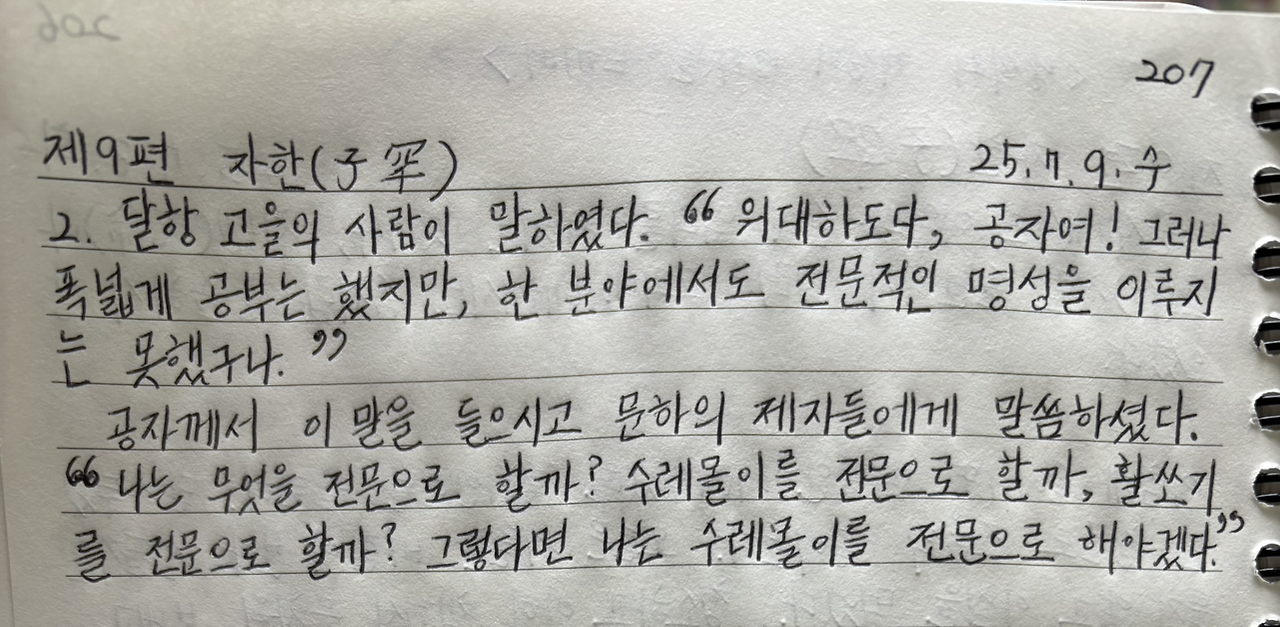 207
제9편 자한(子罕) 25.7.9.수
2. 달항 고을의 사람이 말하였다. “위대하도다, 공자여! 그러나
폭넓게 공부는 했지만, 한 분야에서도 전문적인 명성을 이루지
는 못했구나.”
공자께서 이 말을 들으시고 문하의 제자들에게 말씀하셨다.
“나는 무엇을 전문으로 할까? 수레몰이를 전문으로 할까, 활쏘기
를 전문으로 할까? 그렇다면 나는 수레몰이를 전문으로 해야겠다.”